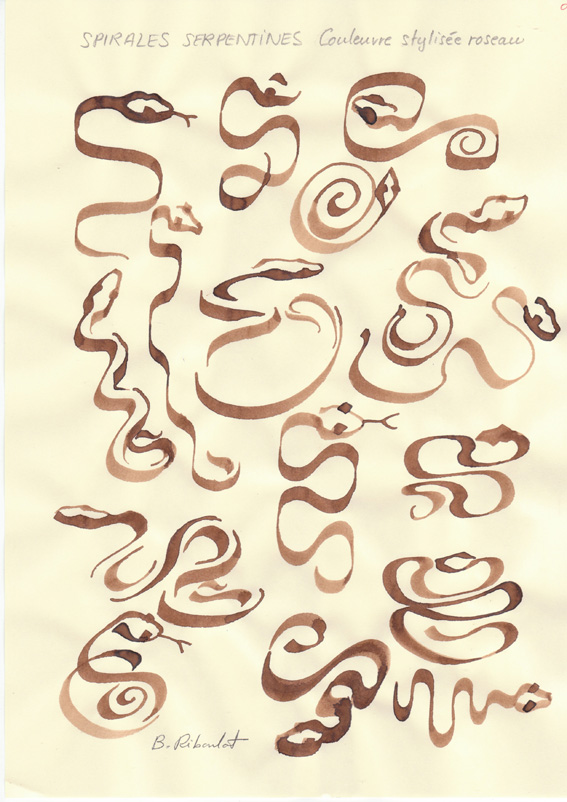 SPIRALES SERPENTINES Couleuvre stylisée roseau
B. Riboulot